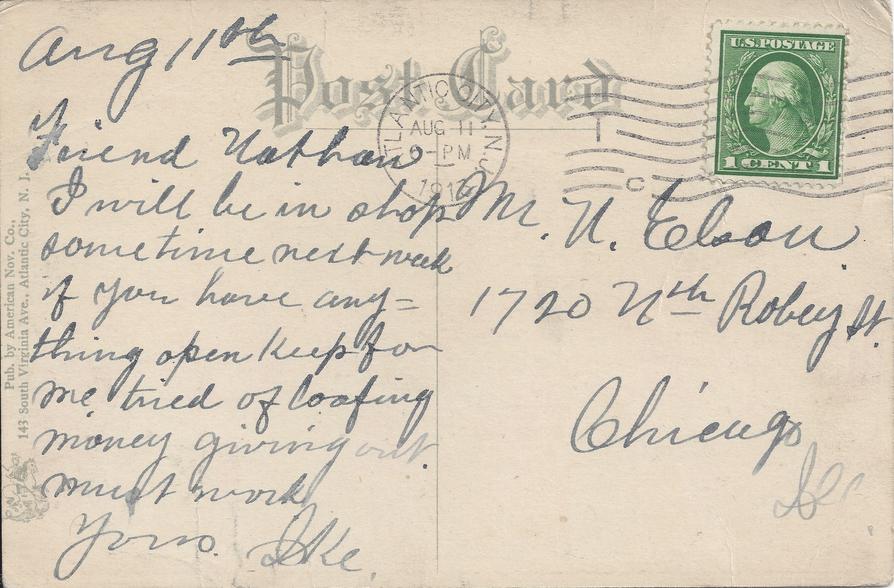 Aug 11th
Post Card
ATLANTIC CITY, N.J.
AUG 11
-PM
U.S. POSTAGE
1 CENT 1
Friend Nathan
I will be in shop
sometime next week
if you have any=
thing open keep for
me, tried of loafing
money giving out
must work
Yours. Ike.
Mr. N. Elson
1720 Nth Robey St.
Chicago
Pub. by American Nov. Co.,
143 South Virginia Ave., Atlantic City, N. J.